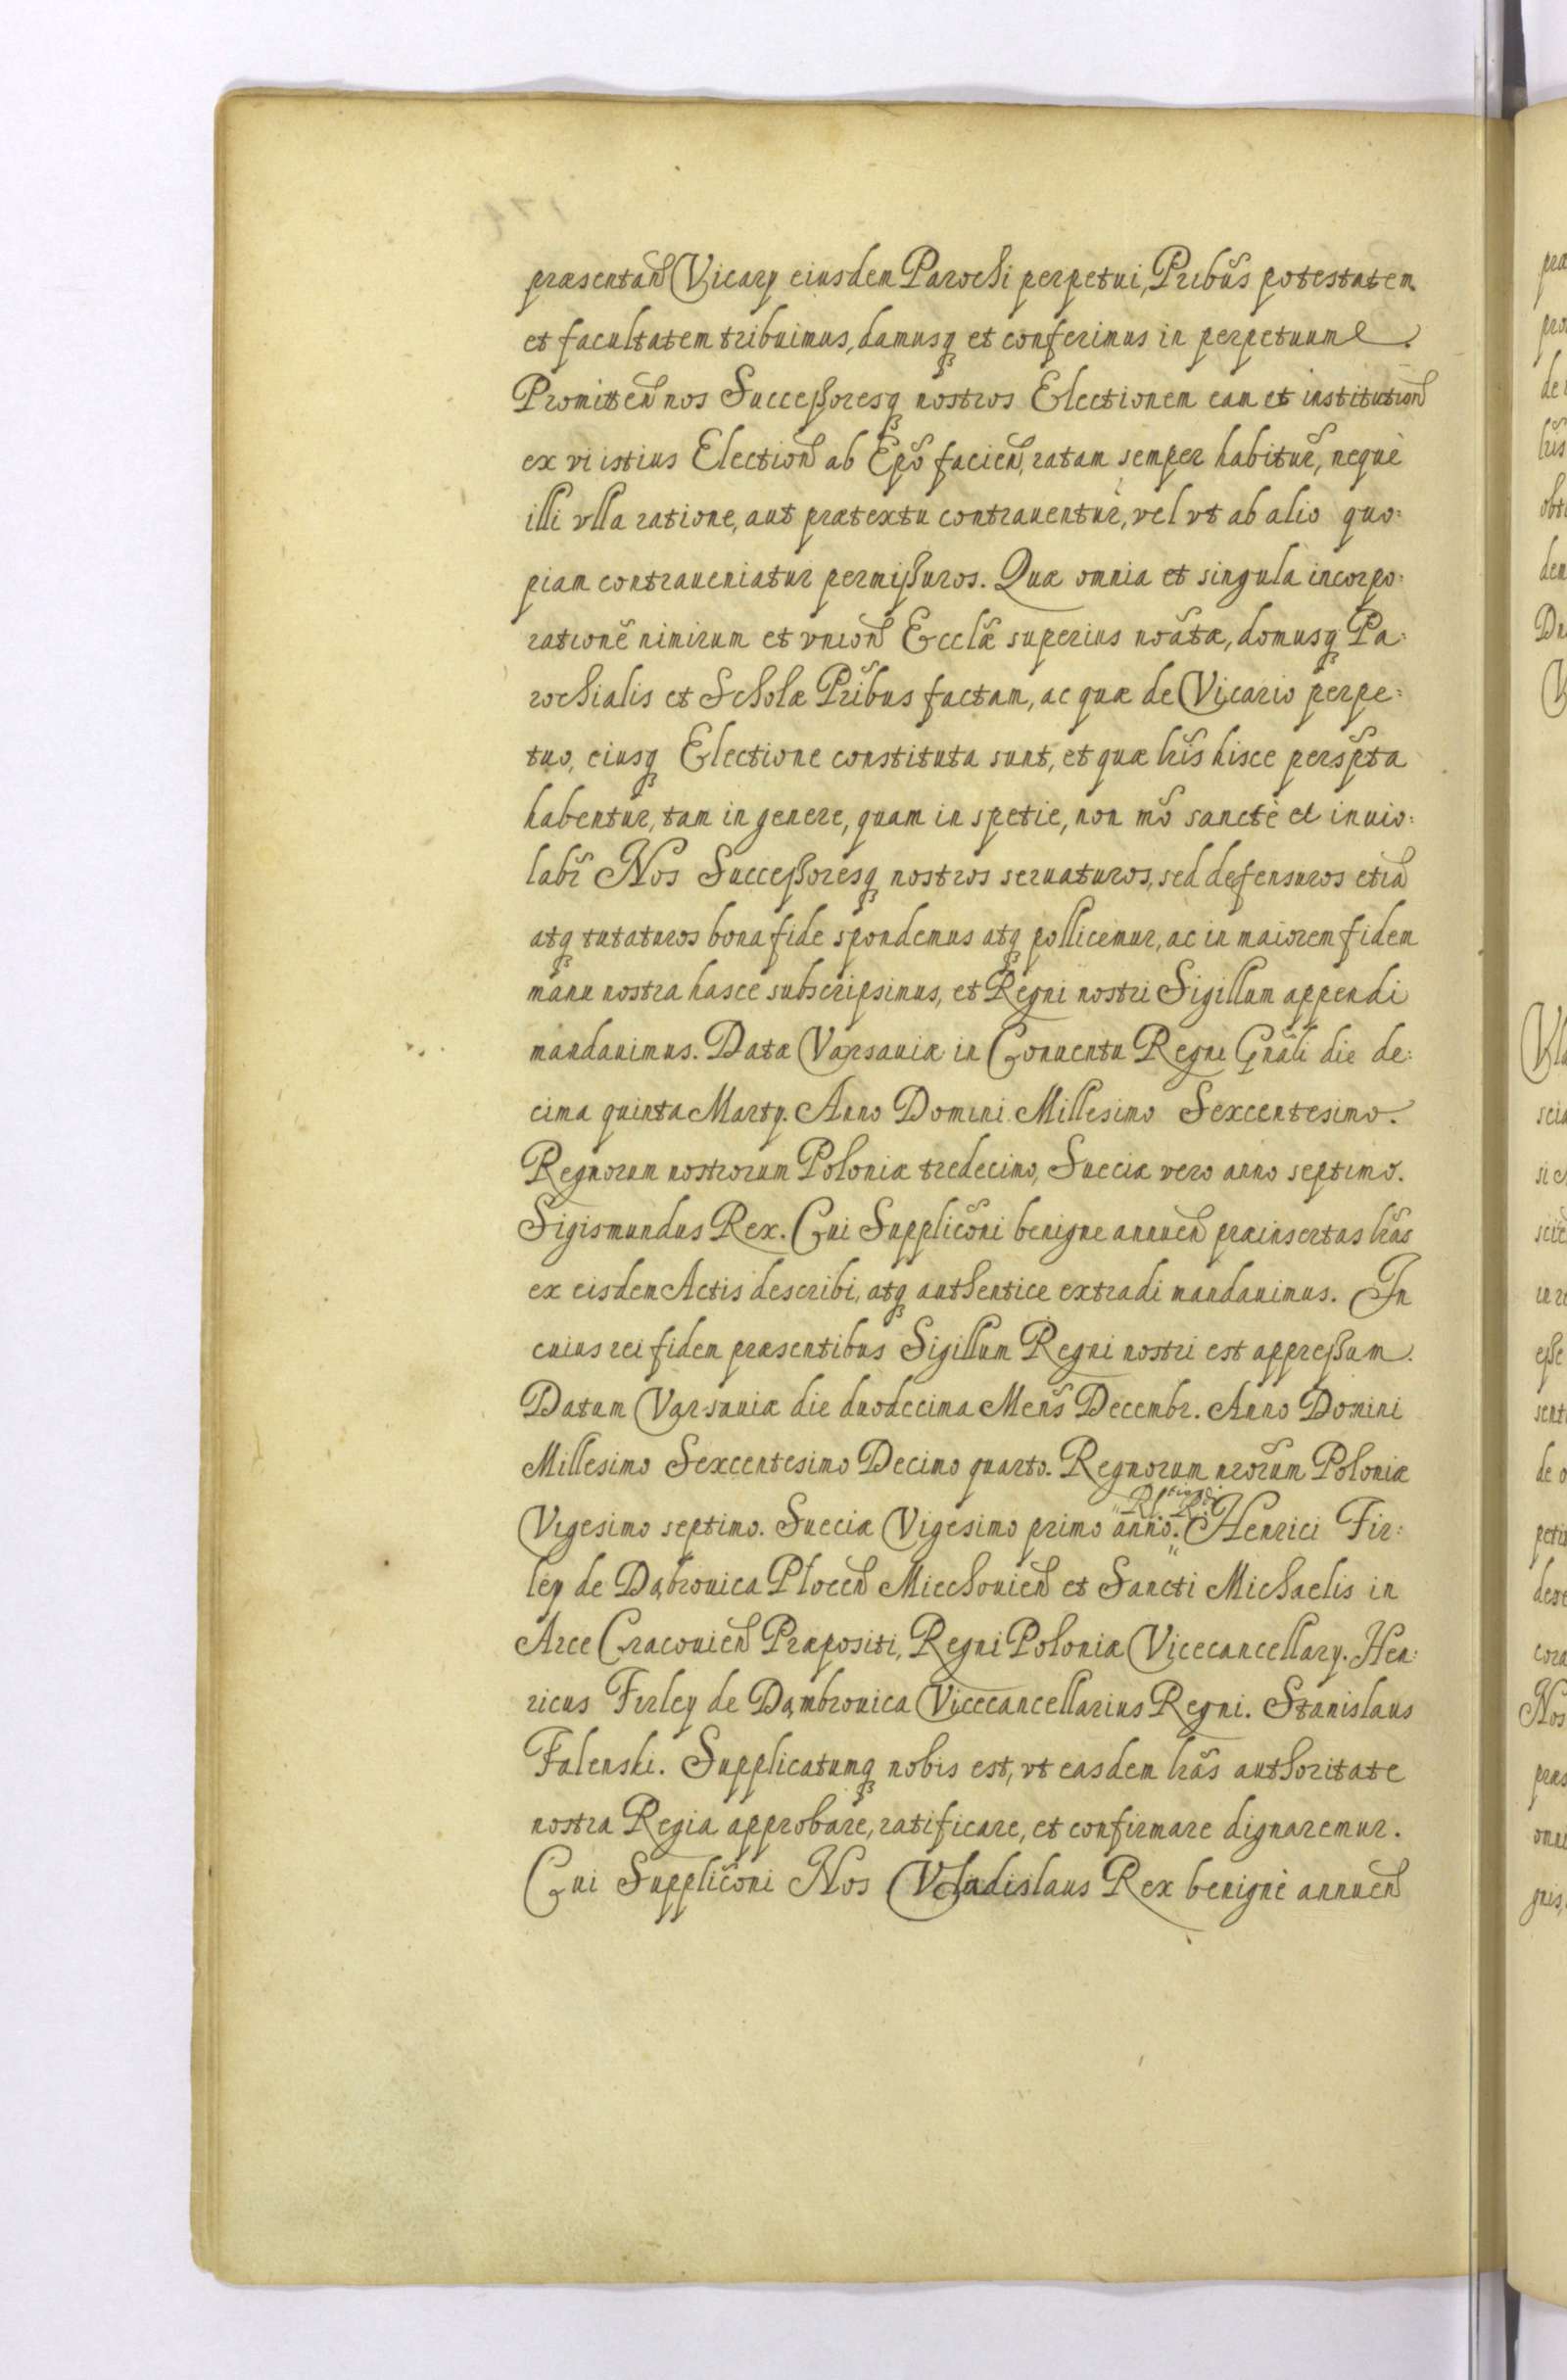 præsentan̄ Vicarÿ eiusdem Parochi perpetui, Pribūs potestatem
et facultatem tribuimus, damusq́ et conferimus in perpetuum.
Promitten̄ nos Successoresq́ nostros Electionem eam et institution̄
ex vi istius Election̄ ab Ep̄o facien̄, ratam semper habitur̄, nequè
illi vlla ratione, aut prætextu contrauentur̄, vel vt ab alio quo:
piam contraueniatur permissuros. Quæ omnia et singula incorpo:
rationē nimirum et vnion̄ Eccl̄æ superius nōatæ, domusq́ Pa:
rochialis et Scholæ Pr̄ibus factam, ac quæ de Vicario perpe:
tuo, eiusq́ Electione constituta sunt, et quæ lr̄is hisce perscr̄pta
habentur, tam in genere, quam in spetie, non mō sanctè et inuio:
labr̄ Nos Successoresq́ nostros seruaturos, sed defensuros etiā
atq́ tutaturos bona fide spondemus atq́ pollicemur, ac in maiorem fidem
manu nostra hasce subscripsimus, et Regni nostri Sigillum appendi
mandauimus. Datæ Varsauiæ in Conuentu Regni Gn̄ali die de:
cima quinta Martÿ. Anno Domini Millesimo Sexcentesimo.
Regnorum nostrorum Poloniæ tredecimo, Sueciæ vero anno septimo.
Sigismundus Rex. Cui Supplic̄oni benigne annuen̄ præinsertas lr̄as
ex eisdem Actis describi, atq́ authentice extradi mandauimus. In
cuius rei fidem præsentibus Sigillum Regni nostri est appressum.
Datum Varsauiæ die duodecima Mens̄ Decembr. Anno Domini
Millesimo Sexcentesimo Decimo quarto. Regnorum nr̄orum Poloniæ
Vigesimo septimo. Sueciæ Vigesimo primo anno. Henrici Fir:
leÿ de Dąbrouica Plocen̄ Miechouien̄ et Sancti Michaelis in
Arce Cracouien̄ Præpositi, Regni Poloniæ Vicecancellarÿ. Hen:
ricus Firleÿ de Dąmbrouica Vicecancellarius Regni. Stanislaus
Falenski. Supplicatumq́ nobis est, vt easdem lr̄as authoritate
nostra Regia approbare, ratificare, et confirmare dignaremur.
Cui Supplic̄oni Nos Vladislaus Rex benignè annuen̄